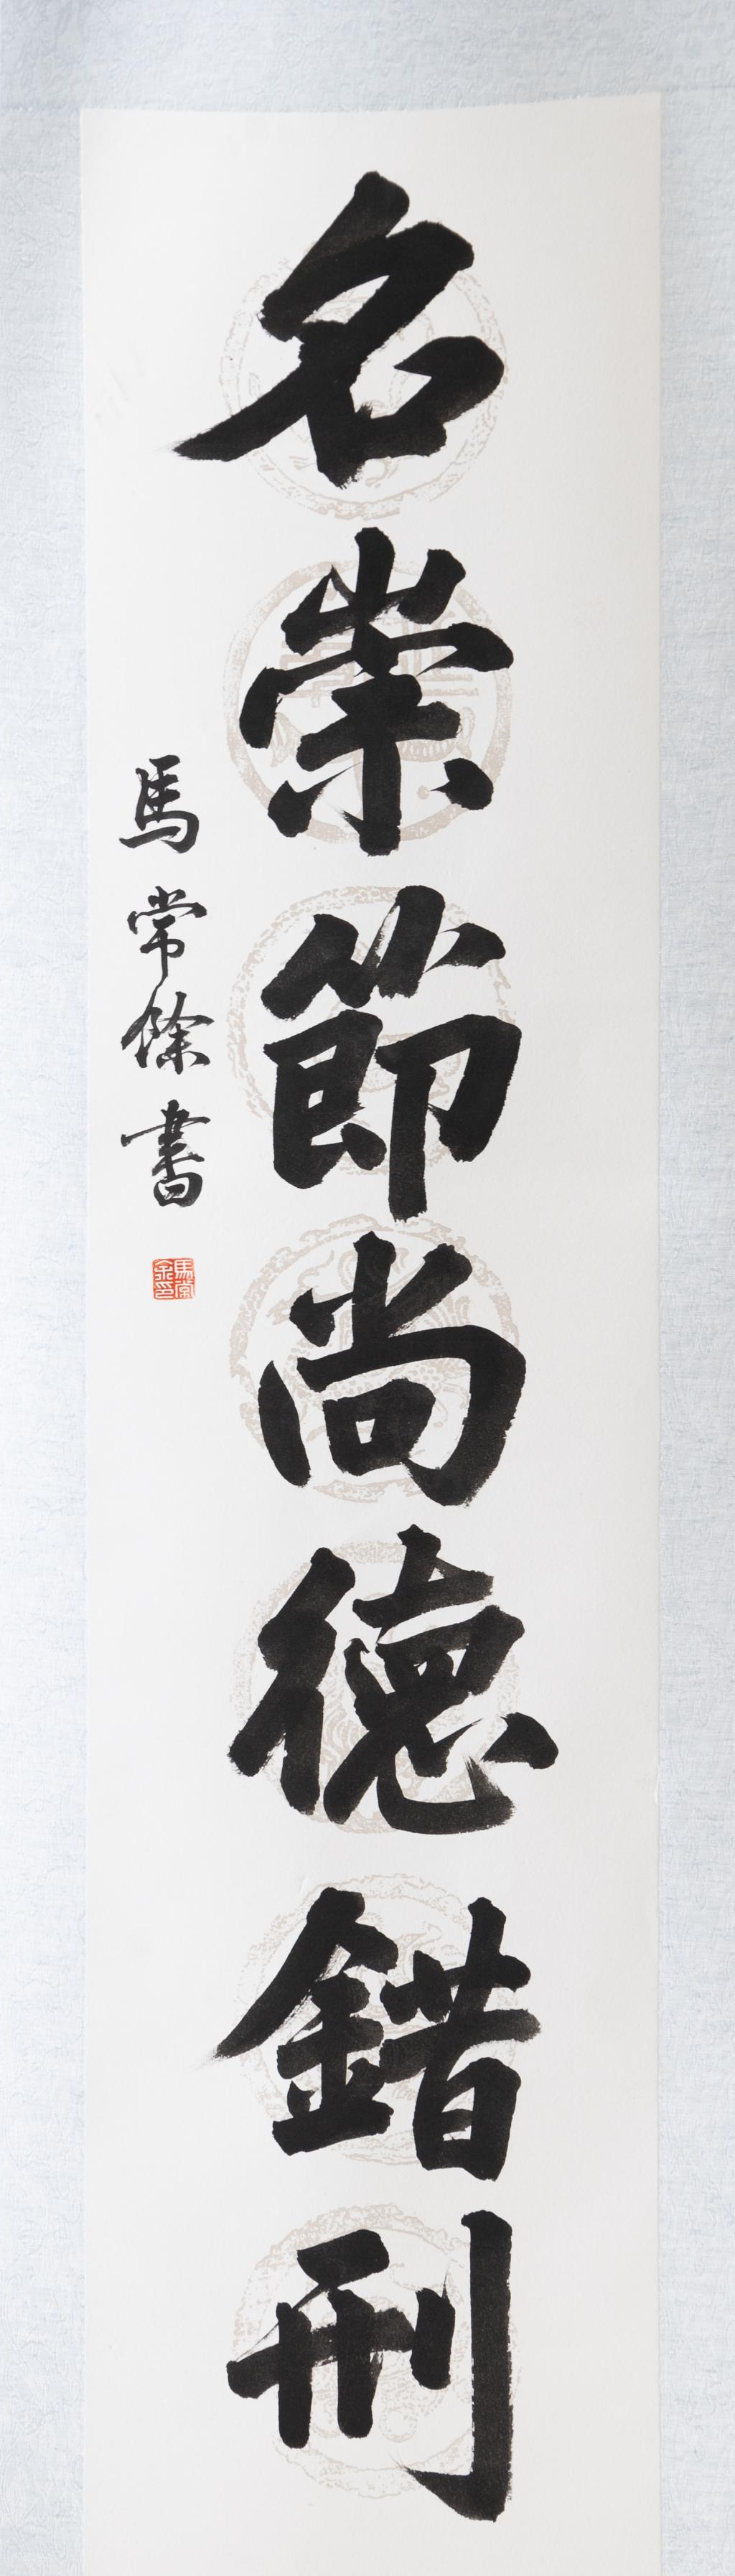 名崇節尚德錯刑
馬常餘書
馬常余印